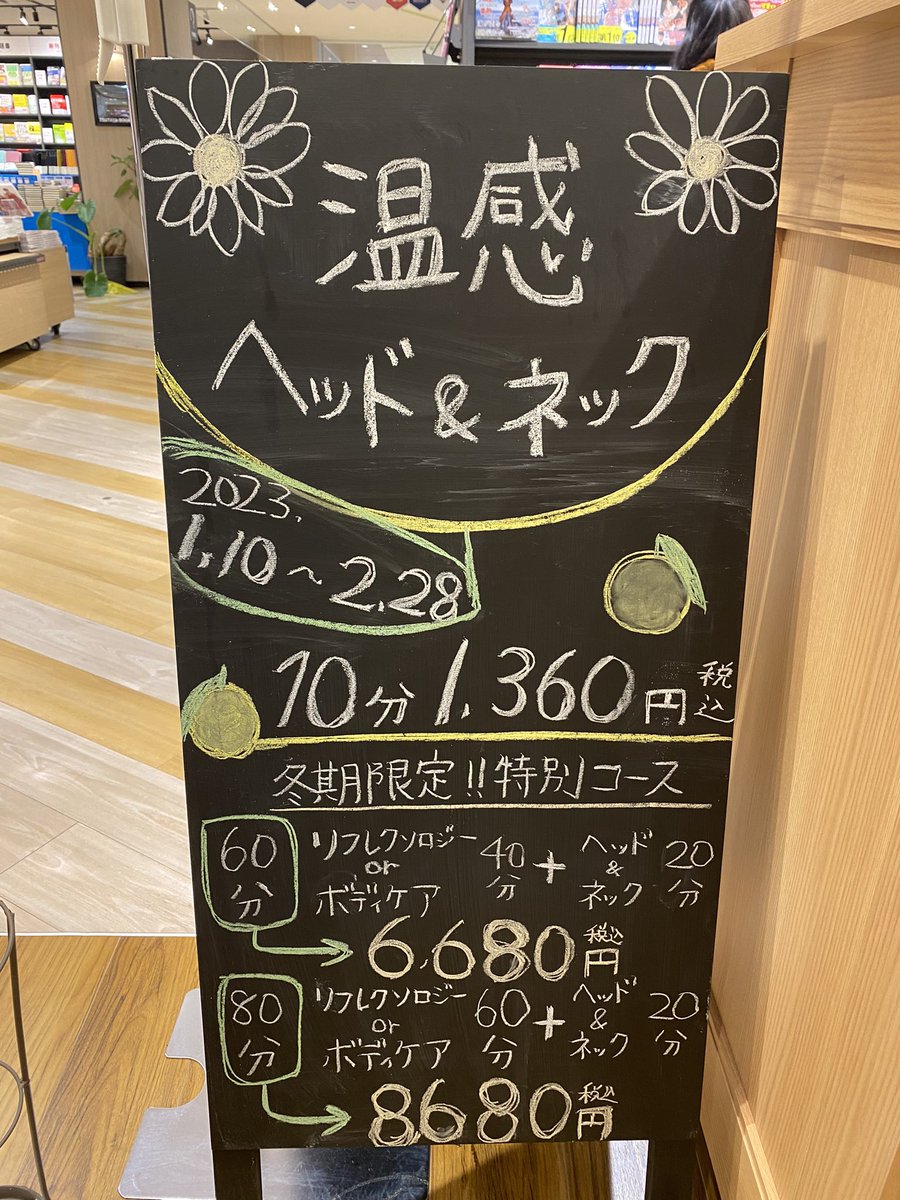 温感
ヘッド&ネック
2023.
1.10～2.28
10分 1,360円 税込
冬期限定!!特別コース
60分 リフレクソロジー or ボディケア 40分 + ヘッド&ネック 20分
6,680円 税込
80分 リフレクソロジー or ボディケア 60分 + ヘッド&ネック 20分
8,680円 税込